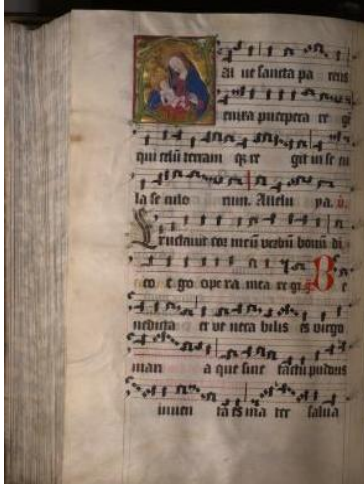 al ue sancta pa rens
enixa puerpera re gē
qui celū terram q̄z re git in se cu
la se culo rum. Alleluya. ū.
Eructauit cor meū verbū bonū di
co e go ope ra mea re gi. g̃ Be
nedicta et ue nera bilis es virgo
man a que sine tactu pudoris
inuen ta es ma ter salua